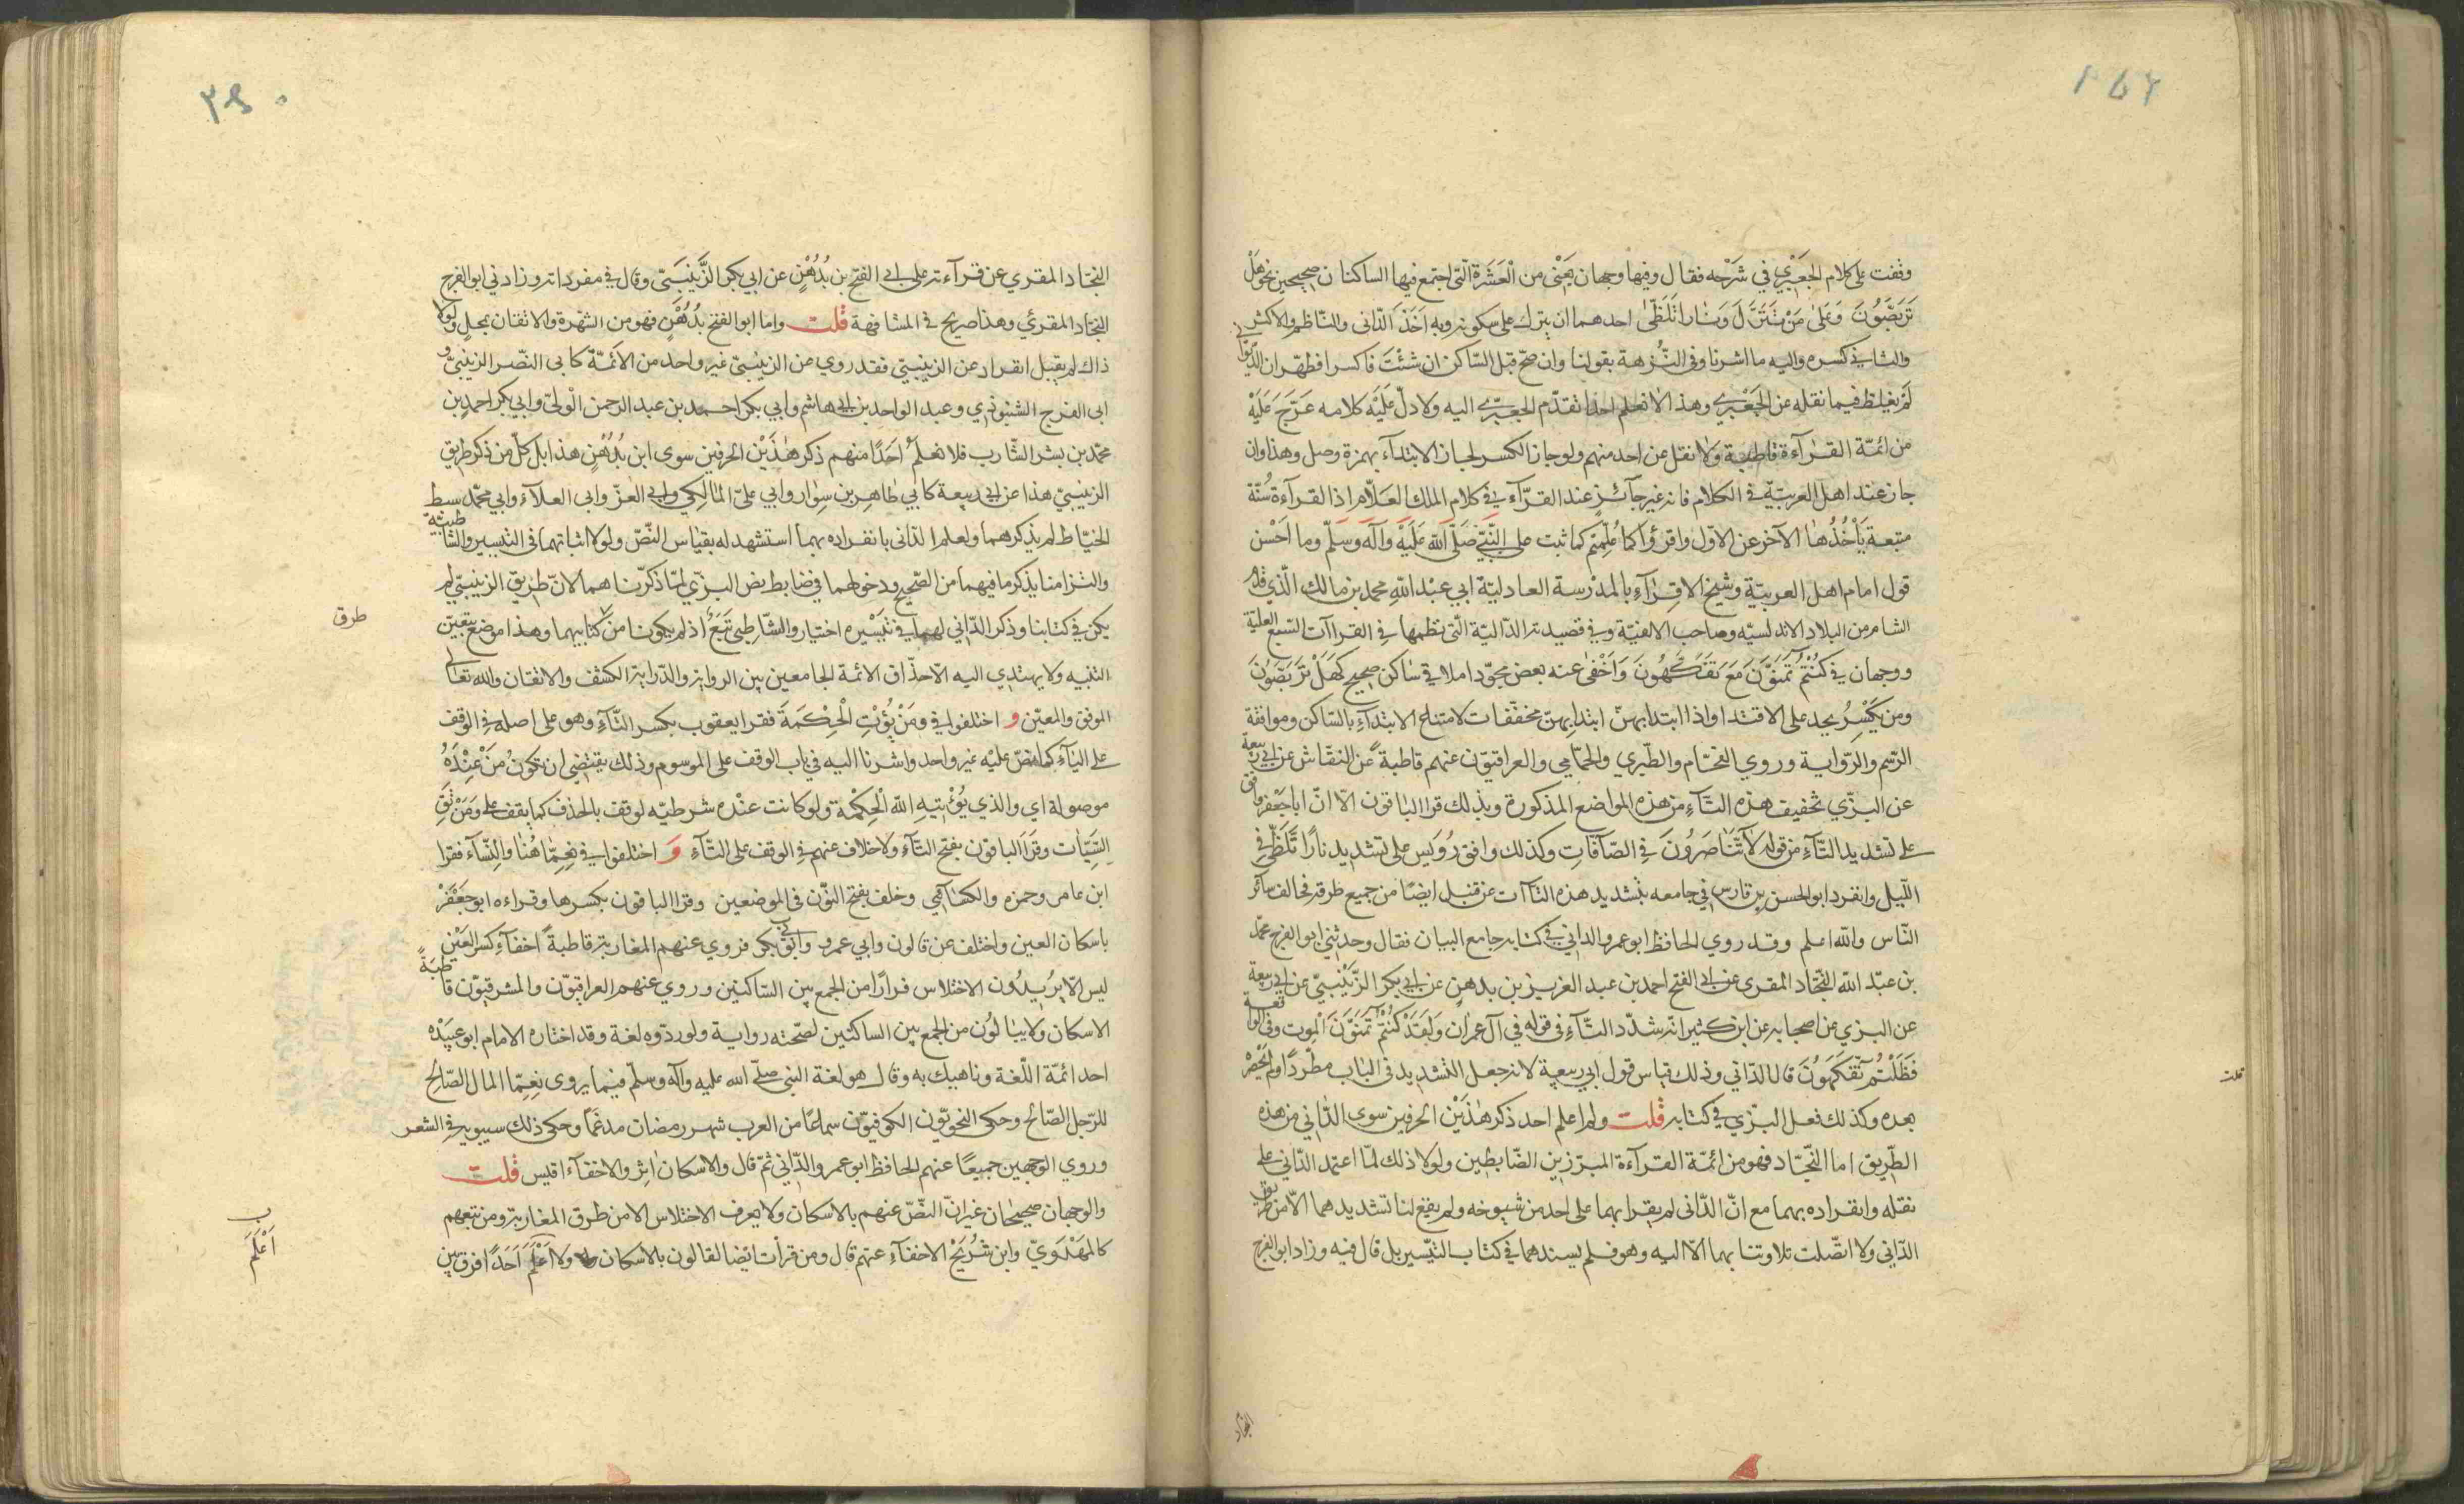 وقفت على كلام الجعبري في شرحه فقال وفيها وجهان يعني من العشرة التي اجتمع فيها الساكنان صحيحين نحو هل
تربصون وعلى من تنزل ونارا تلظى احدهما ان يترك على سكونه وبه اخذ الداني والناظم والاكثر
والثاني كسره واليه ما اشرنا وفي النزهة بقولنا وان صح قبل الساكن ان شئت فاكسرا فظهر ان الديواني
لم يغلط فيما نقله عن الجعبري وهذا لا نعلم احدا تقدم الجعبري اليه ولا دل عليه كلامه عرج عليه
من ائمة القراءة قاطبة ولا نقل عن احد منهم ولو جاز الكسر لجاز الابتداء بهمزة وصل وهذا وان
جاز عند اهل العربية في الكلام فانه غير جائز عند القراء في كلام الملك العلام اذ القراءة سنة
متبعة يأخذها الآخر عن الاول واقرؤا كما علمتم كما ثبت على النبي صلى الله عليه وآله وسلم وما احسن
قول امام اهل العربية وشيخ الاقراء بالمدرسة العادلية ابي عبد الله محمد بن مالك الذي قدم
الشام من البلاد الاندلسيه وصاحب الالفية وفي قصيدته الدالية التي نظمها في القراآت السبع العلية
ووجهان في كنتم تمنون مع تفكهون واخفى عنه بعض مجودا ملاقي ساكن صحيح كهل تربصون
ومن يكسر يحد على الاقتدا واذا ابتدا بهن ابتدا بهن مخففات لامتناع الابتداء بالساكن وموافقة
الرسم والرواية وروي الفحام والطبري والحمامي والعراقيون عنهم قاطبة عن النقاش عن ابي ربيعة
عن البزي تخفيف هذه التاء من هذه المواضع المذكورة وبذلك قرا الباقون الا ان ابا جعفر وافق
على تشديد التاء من قوله لا تناصرون في الصآفات وكذلك وافق رويس على تشديد نارا تلظى في
الليل وانفرد ابو الحسن بن فارس في جامعه بتشديد هذه التاآت عن قنبل ايضا من جميع طرقه فخالف سائر
الناس والله اعلم وقد روي الحافظ ابو عمرو الداني في كتابه جامع البيان فقال وحدثني ابو الفرج محمد
بن عبد الله النجاد المقرى عن ابي الفتح احمد بن عبد العزيز بن بدهن عن ابي بكر الزينبي عن ابي ربيعة
عن البزي عن اصحابه عن ابن كثير انه شدد التاء في قوله في آل عمران ولقد كنتم تمنون الموت وفي الواقعة
فظلتم تفكهون قال الداني وذلك قياس قول ابي ربيعة لانه جعل التشديد في الباب مطردا ولم يحصره
بعده وكذلك فعل البزي في كتابه قلت ولم اعلم احد ذكر هذين الحرفين سوى الداني من هذه
الطريق اما النجاد فهو من ائمة القراءة المبرزين الضابطين ولولا ذلك لما اعتمد الداني على
نقله وانفراده بهما مع ان الداني لم يقرا بهما على احد من شيوخه ولم يقع لنا تشديدهما الا من طريق
الداني ولا اتصلت تلاوتنا بهما الا اليه وهو فلم يسندهما في كتاب التيسير بل قال فيه وزاد ابو الفرج
النجاد
قلت
النجاد المقري عن قراءته على ابي الفتح بن بدهن عن ابي بكر الزينبي وقال في مفرداته وزادني ابو الفرج
النجاد المقرئي وهذا صريح في المشافهة قلت واما ابو الفتح بدهن فهو من الشهرة والاتقان بمحل ولولا
ذاك لم يقبل انفراد عن الزينبي فقد روي عن الزينبي غير واحد من الائمة كابى النصر الزينبي و
ابى الفرج الشنبوذي وعبد الواحد بن ابي هاشم وابي بكر احمد بن عبد الرحمن الولي وابي بكر احمد بن
محمد بن بشر الشارب فلا نعلم احدا منهم ذكر هذين الحرفين سوى ابن بدهن هذا بل كل من ذكر طريق
الزينبي هذا عن ابي ربيعة كابي طاهر بن سوار وابي على المالكي وابي العز وابى العلآء وابي محمد سبط
الخياط لم يذكرهما ولعلم الدانى بانفراده بهما استشهد له بقياس النص ولولا اثباتهما في التيسير والشاطبية
والتزامنا بذكر ما فيهما من الصحيح ودخولهما في ضابط نص البزي لما ذكرناهما لان طريق الزينبي لم
يكن في كتابنا وذكر الداني لهما في تيسيره اختيار والشاطبى تبع اذ لم يكونا من كتابيهما وهذا موضع يتعين
طرق
التنبيه ولا يهتدي اليه الا حذاق الائمة الجامعين بين الرواية والدراية الكشف والاتقان والله تعالى
الموفق والمعين و اختلفوا في ومن يؤت الحكمة فقرا يعقوب بكسر التاء وهو على اصله في الوقف
على الياء كما نص عليه غير واحد واشرنا اليه في باب الوقف على المرسوم وذلك يقتضى ان تكون من عنده
موصولة اي والذي يؤتيه الله الحكمة ولو كانت عنده شرطيه لوقف بالحذف كما يقف على ومن تق
السيئات وقرا الباقون بفتح التاء ولا خلاف عنهم في الوقف على التاء و اختلفوا في نعما هنا والنساء فقرا
ابن عامر وحمزه والكسائي وخلف بفتح النون في الموضعين وقرا الباقون بكسرها وقراءه ابو جعفر
باسكان العين واختلف عن قالون وابي عمرو وابي بكر فروي عنهم المغاربة قاطبة اخفاء كسر العين
ليس الا يريدون الاختلاس فرارا من الجمع بين الساكنين وروي عنهم العراقيون والمشرقيون قاطبة
الاسكان ولا يبالون من الجمع بين الساكنين لصحته رواية ولوردوه لغة وقد اختاره الامام ابو عبيده
احد ائمة اللغة وناهيك به وقال هو لغة النبي صلى الله عليه وآله وسلم فيما يروى نعما المال الصالح
للرجل الصالح وحكى النحويون الكوفيون سماعا من العرب شهر رمضان مدغما وحكى ذلك سيبويه في الشعر
وروي الوجهين جميعا عنهم الحافظ ابو عمرو الداني ثم قال والاسكان اثر والاخفاء اقيس قلت
والوجهان صحيحان غير ان النص عنهم بالاسكان ولا يعرف الاختلاس الا من طرق المغاربة ومن تبعهم
كالمهدوي وابن شريح الاخفاء عنهم قال ومن قرأت ايضا لقالون بالاسكان ولا اعلم احدا فرق بين
اعلم